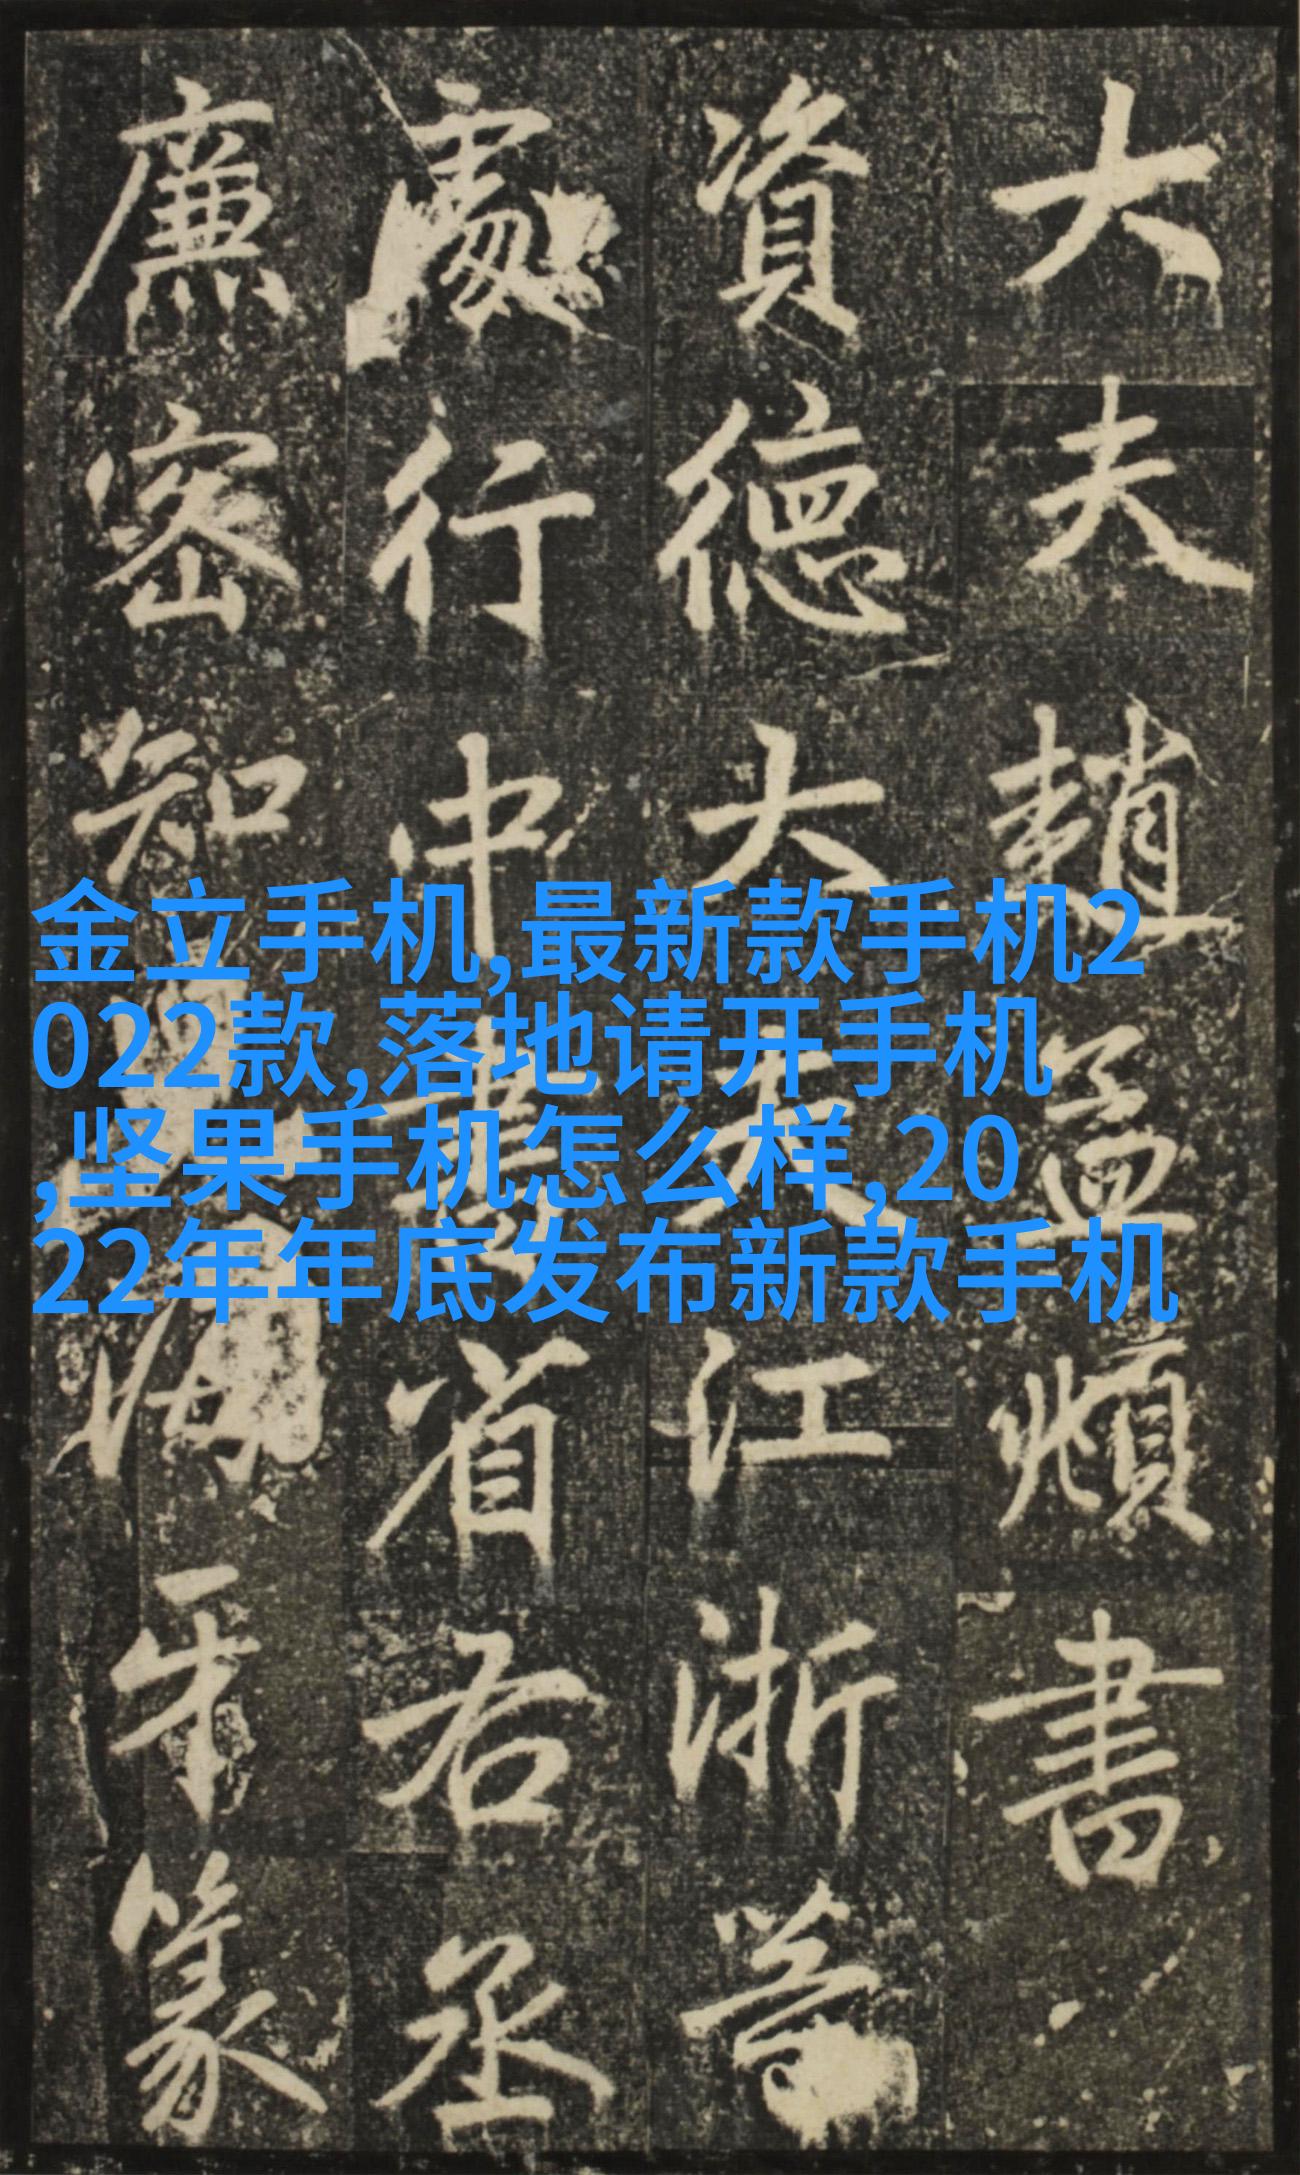 大夫趙孟頫書
資德大夫江浙等
處行中書省右丞
廉密知海牙篆
金立手机,最新款手机2
022款,落地请开手机
,坚果手机怎么样,20
22年年底发布新款手机